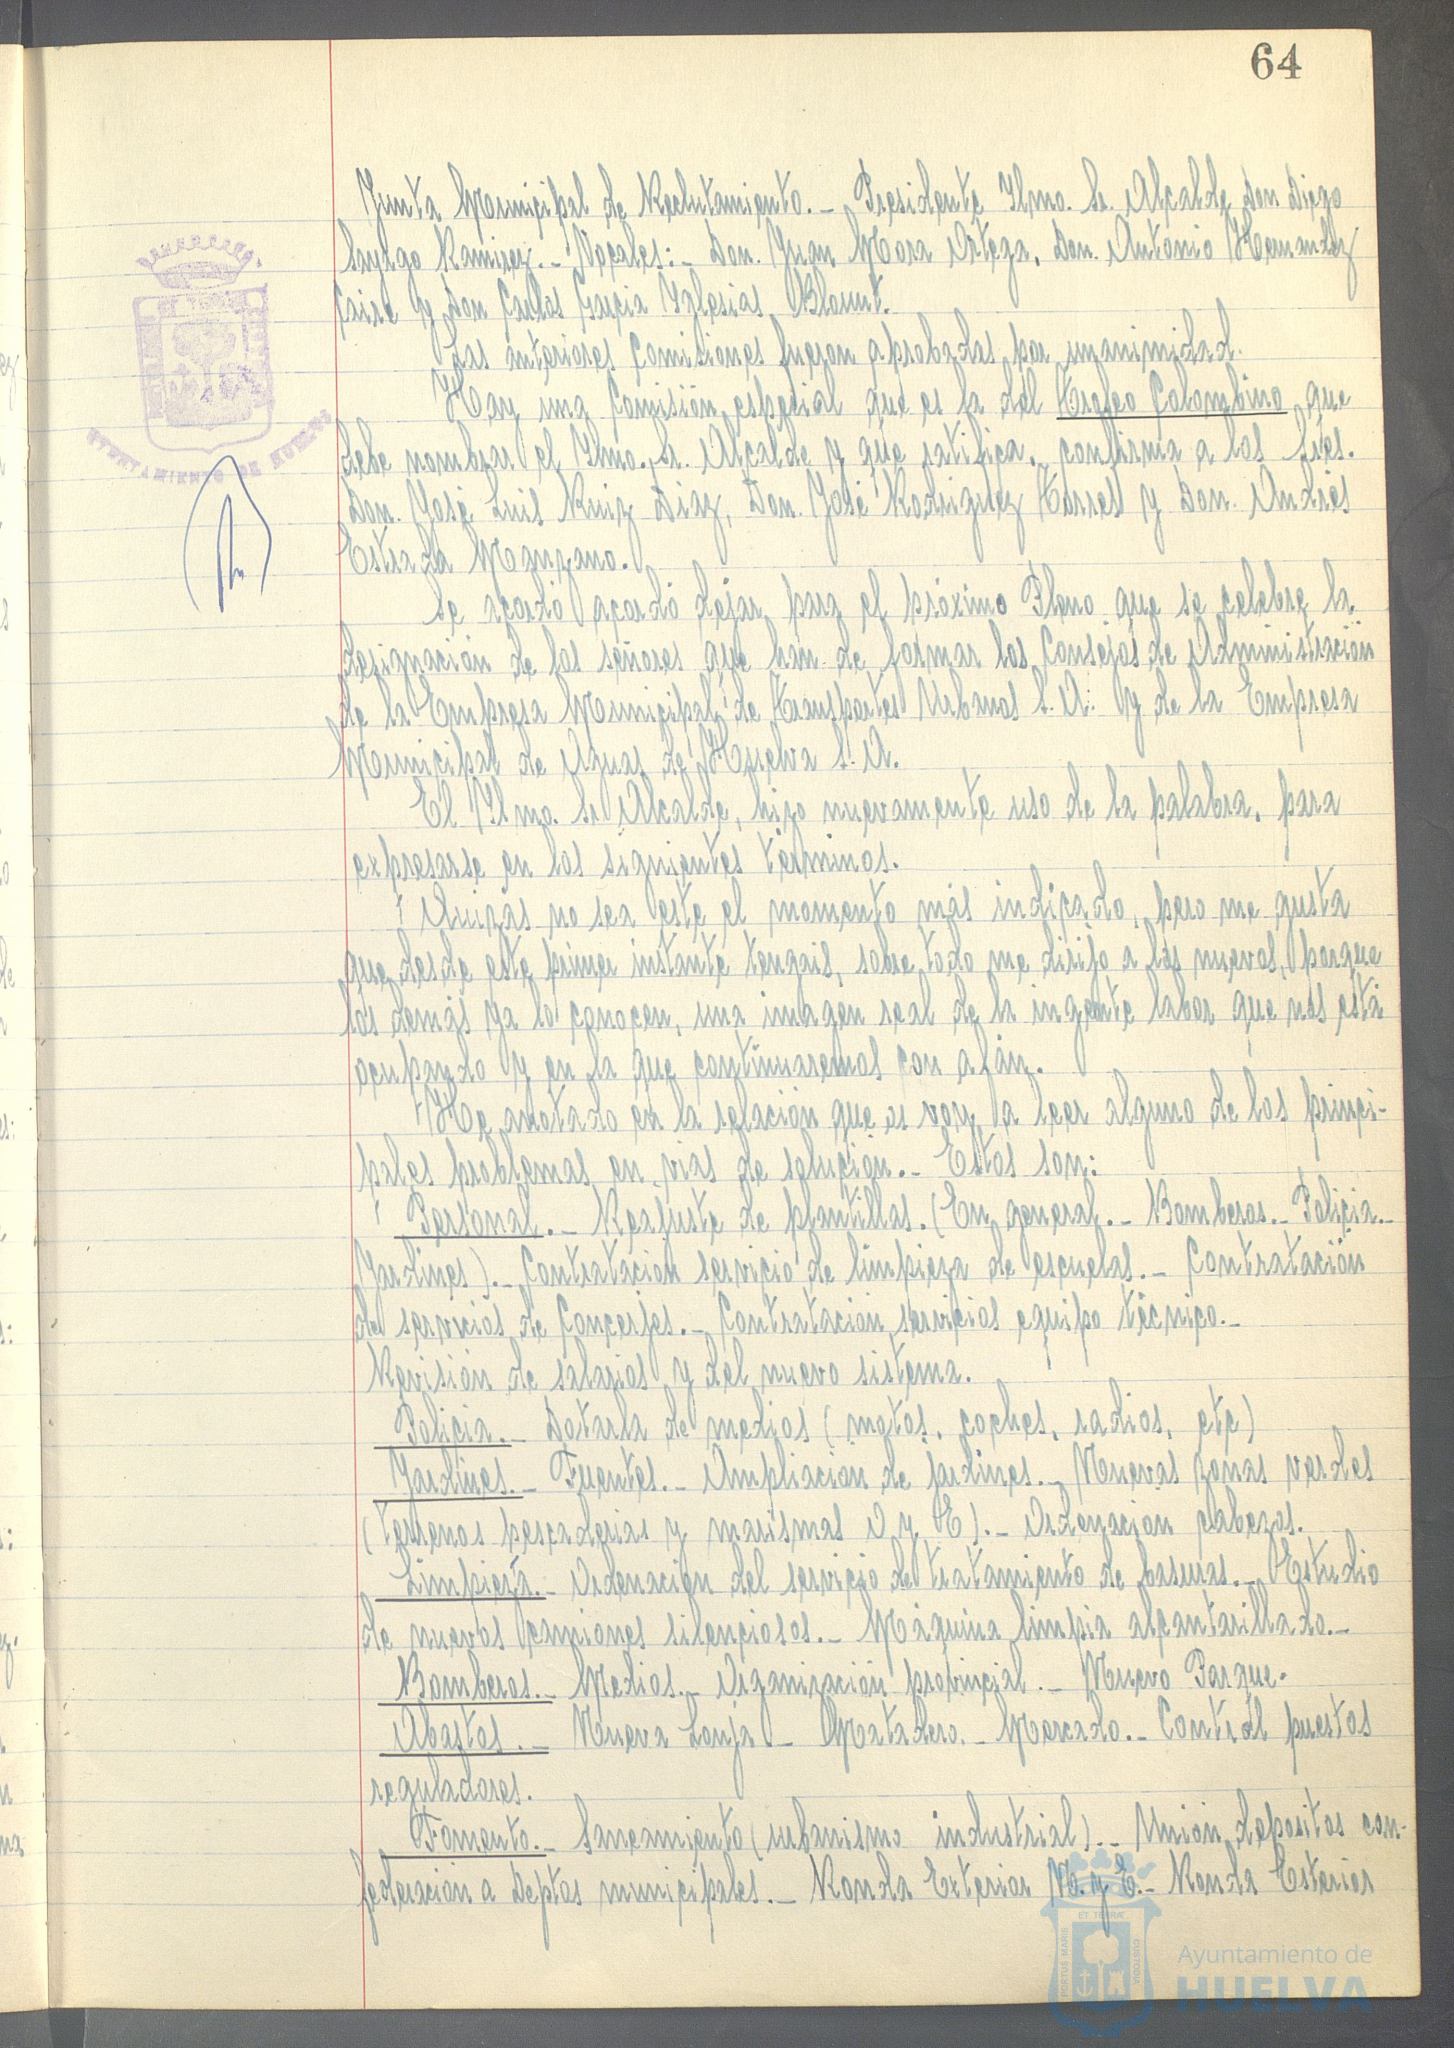 64
Junta Municipal de Reclutamiento.- Presidente Ylmo. Sr. Alcalde Don Diego
Sayago Ramirez.- Vocales:- Don Juan Mora Ortega, Don Antonio Hernandez
y Don Carlos Garcia Yglesias Blount.
Las anteriores Comisiones fueron aprobadas por unanimidad.
Hay una Comisión especial que es la del Trofeo Colombino que
debe nombrar el Ylmo. Sr. Alcalde y que ratifica, confirma a los Sres.
Don José Luis Ruiz Diaz, Don José Rodriguez Torres y Don Andrés
Estrada Manzano.
Se acordó acordó dejar para el próximo Pleno que se celebre la
designación de los señores que han de formar los Consejos de Administración
de la Empresa Municipal de Transportes Urbanos S.A. y de la Empresa
Municipal de Aguas de Huelva S.A.
El Ylmo. Sr Alcalde, hizo nuevamente uso de la palabra, para
expresarse en los siguientes términos.
Quizás no sea este el momento más indicado, pero me gusta
que desde este primer instante tengais, sobre todo me dirijo a los nuevos, porque
los demás ya lo conocen, una imagen real de la ingente labor que nos está
ocupando y en la que continuaremos con afán.
He anotado en la relación que os voy a leer alguno de los princi-
pales problemas en vias de solución.- Estos son:
Personal.- Reajuste de plantillas. (En general.- Bomberos.- Policia.-
Jardines).- Contratación servicio de limpieza de escuelas.- Contratación
de servicios de Conserjes.- Contratación servicios equipo técnico.-
Revisión de salarios y del nuevo sistema.
Policia.- Dotarla de medios (motos, coches, radios, etc)
Jardines.- Fuentes.- Ampliación de jardines.- Nuevas zonas verdes
(terrenos pescaderias y marismas O y E).- Ordenación cabezos.
Limpieza.- Ordenación del servicio de tratamiento de basuras.- Estudio
de nuevos camiones silenciosos.- Máquina limpia alcantarillado.-
Bomberos.- Medios.- Organización provincial.- Nuevo Parque.
Abastos.- Nueva Lonja - Matadero.- Mercado.- Control puestos
reguladores.
Fomento.- Saneamiento (urbanismo industrial).- Unión depositos con-
federación a Deptos municipales.- Ronda Exterior N. y E.- Ronda Esterior
AYUNTAMIENTO DE HUELVA
Ayuntamiento de
HUELVA
PORTUS MARIS
ET TERRÆ
CUSTODIA